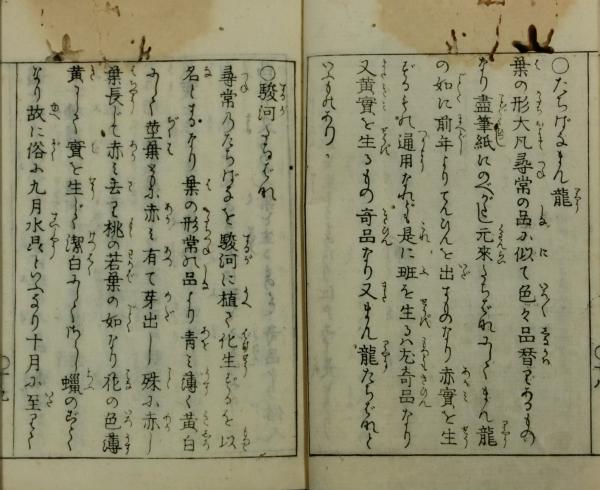 〇たちばなまん龍
葉の形大凡尋常の品に似て色々品替りあるもの
なり盡筆紙にのべがたし元來たちばなにしてまん龍
の如に前年よりてんひんを出すものなり赤實を生
ずるもの通用なれども是に班を生るハ尤奇品なり
又黄實を生るもの奇品なり又まん龍たちばなと
いふものあり、
〇駿河たちばな
尋常乃たちばなを駿河に植て化生するを以
名とするなり葉の形常の品より青ミ薄く黄白
にして莖葉ともに赤ミ有て芽出し殊に赤し
葉長じて赤ミ去り桃の若葉の如なり花の色薄
黄にして實を生じ潔白にして蠟のごとく
なり故に俗に九月水晶といふなり十月に至りて